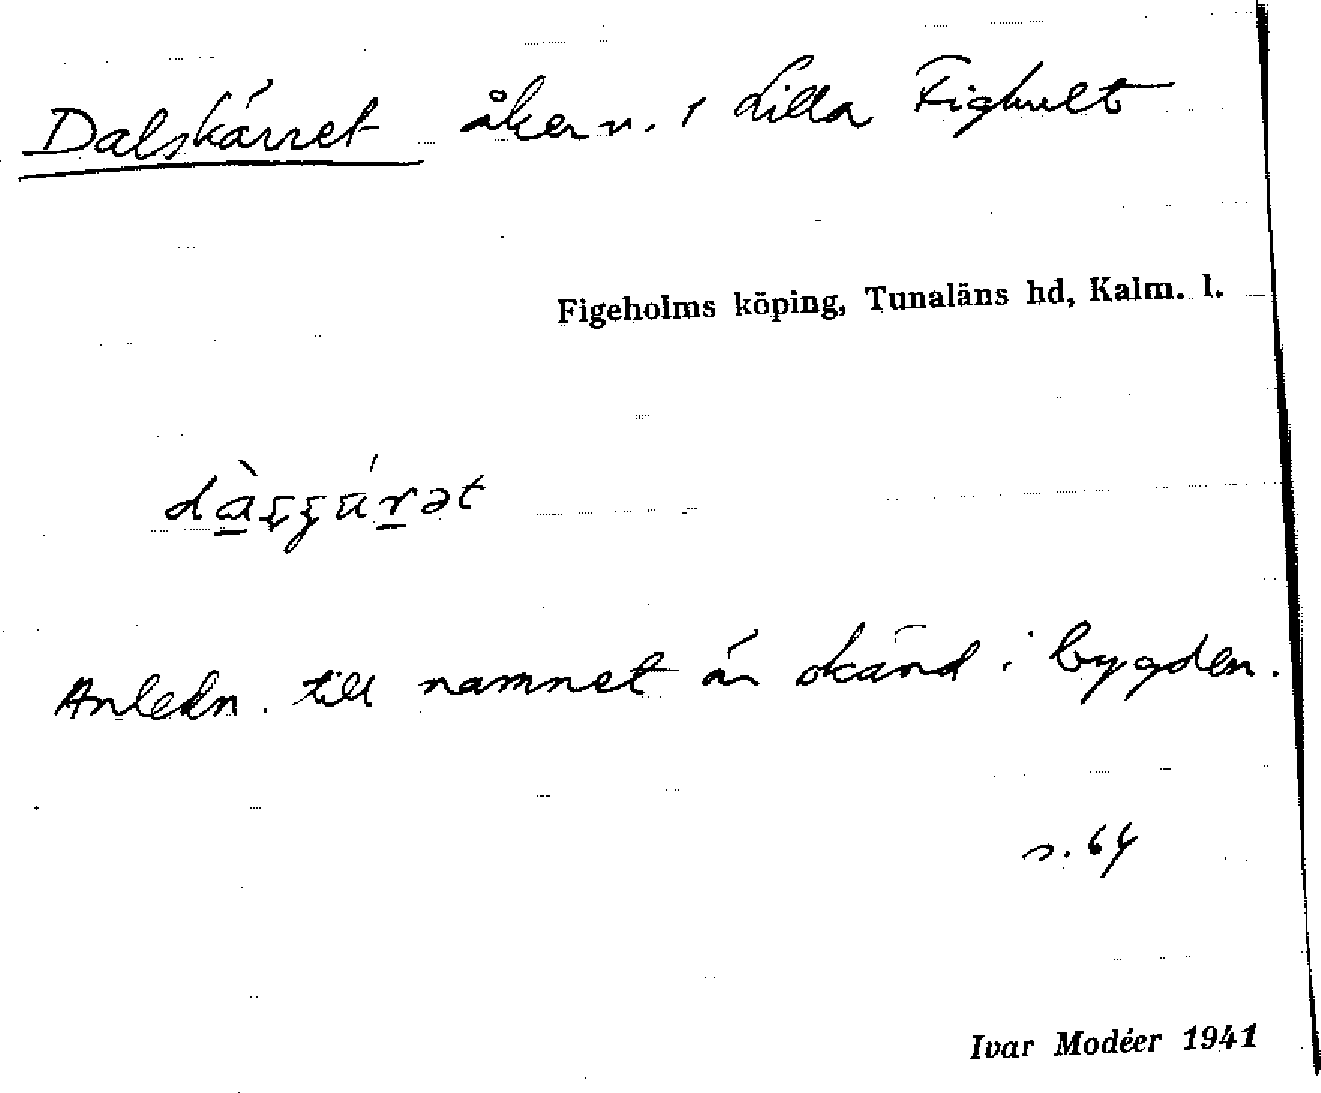 Dalskärret åkern. i Lilla Fighult
Figeholms köping, Tunaläns hd, Kalm. l.
Anledn. till namnet är okänd i bygden.
s. 64
Ivar Modéer 1941